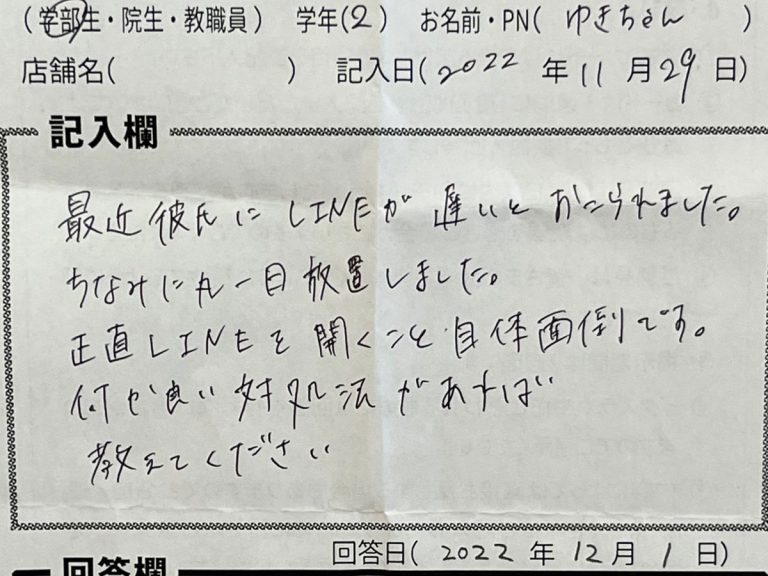 （学部生・院生・教職員） 学年（2） お名前・PN（ ゆきちゃん ）
店舗名（ ） 記入日（2022 年 11 月 29 日）
記入欄
最近彼氏にLINEが遅いとおこられました。
ちなみに丸一日放置しました。
正直LINEを開くこと自体面倒です。
何か良い対処法があれば
教えてください
回答日（ 2022 年 12 月 1 日）
回答欄